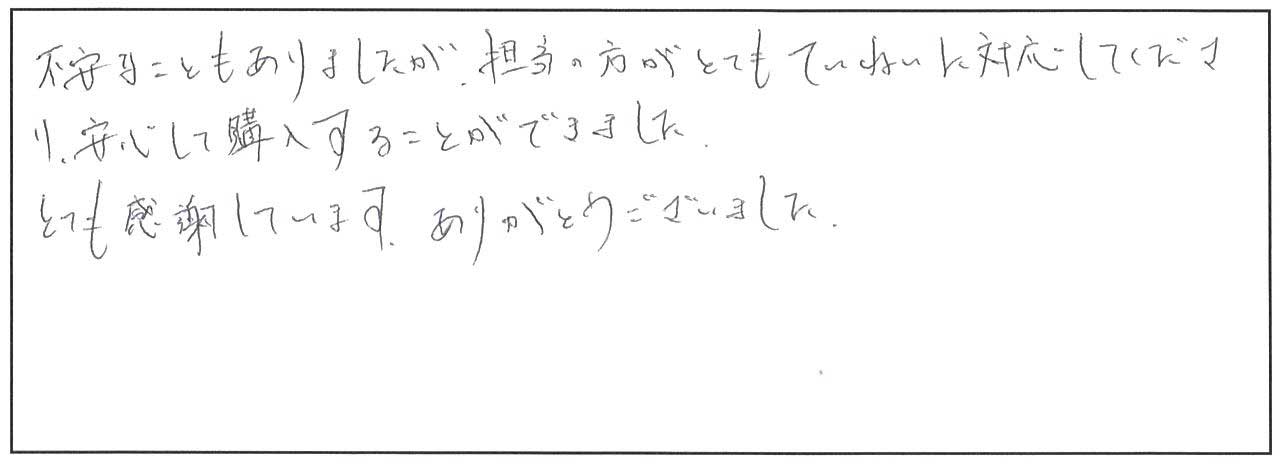 不安なこともありましたが、担当の方がとてもていねいに対応してくださ
り、安心して購入することができました。
とても感謝しています。ありがとうございました。